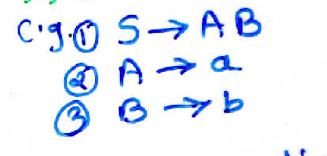 C.g. ① S → AB
② A → a
③ B → b